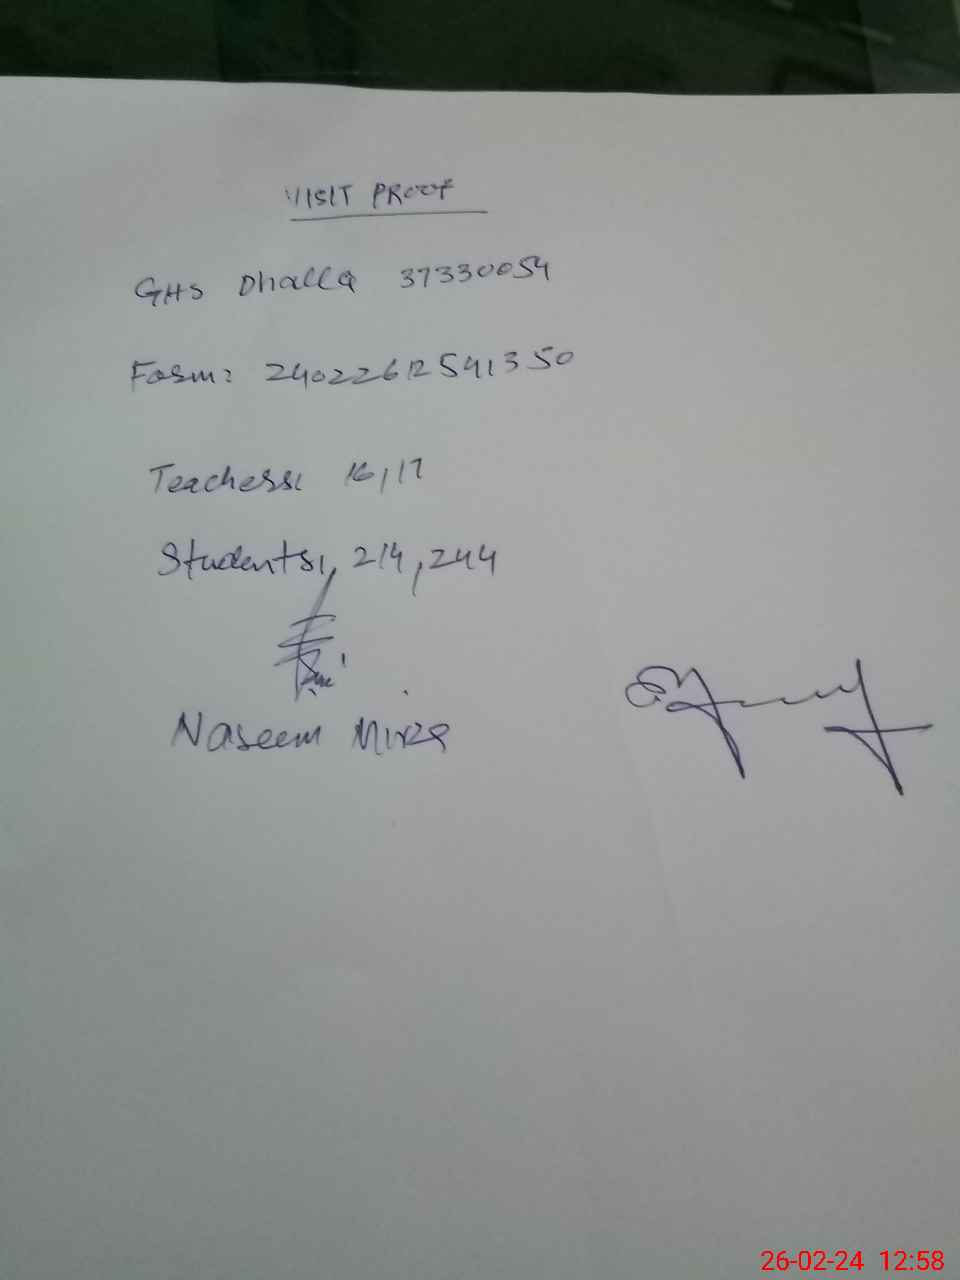 VISIT PROOF
GHS Dhalla 37330054
Form: 24022612541350
Teachers: 16,17
Students: 214,244
Naseem Mirza
26-02-24 12:58